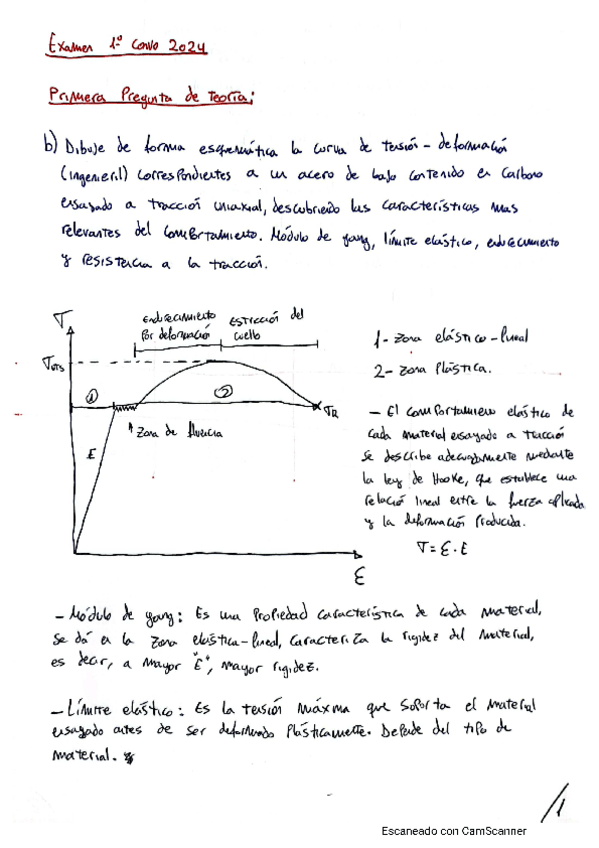 Examen 1º Convo 2024
Primera Pregunta de Teoría;
b) Dibuje de forma esquemática la curva de tensión - deformación
(ingenieril) correspondientes a un acero de bajo contenido en carbono
ensayado a tracción uniaxial, descubriendo las características mas
relevantes del comportamiento. Módulo de yang, límite elástico, endurecimiento
y resistencia a la tracción.
σ
Endurecimiento
por deformación
Estricción del
cuello
σUTS
1
2
σR
Zona de fluencia
E
ε
1- Zona elástico-lineal
2- Zona Plástica.
- El comportamiento elástico de
cada material ensayado a tracción
se describe adecuadamente mediante
la ley de Hooke, que establece una
relación lineal entre la fuerza aplicada
y la deformación producida.
σ = ε · E
- Módulo de yang: Es una propiedad característica de cada material,
se dá en la zona elástica-lineal, caracteriza la rigidez del material,
es decir, a mayor "E", mayor rigidez.
- Límite elástico: Es la tensión máxima que soporta el material
ensayado antes de ser deformado plásticamente. Depende del tipo de
material.
/1
Escaneado con CamScanner